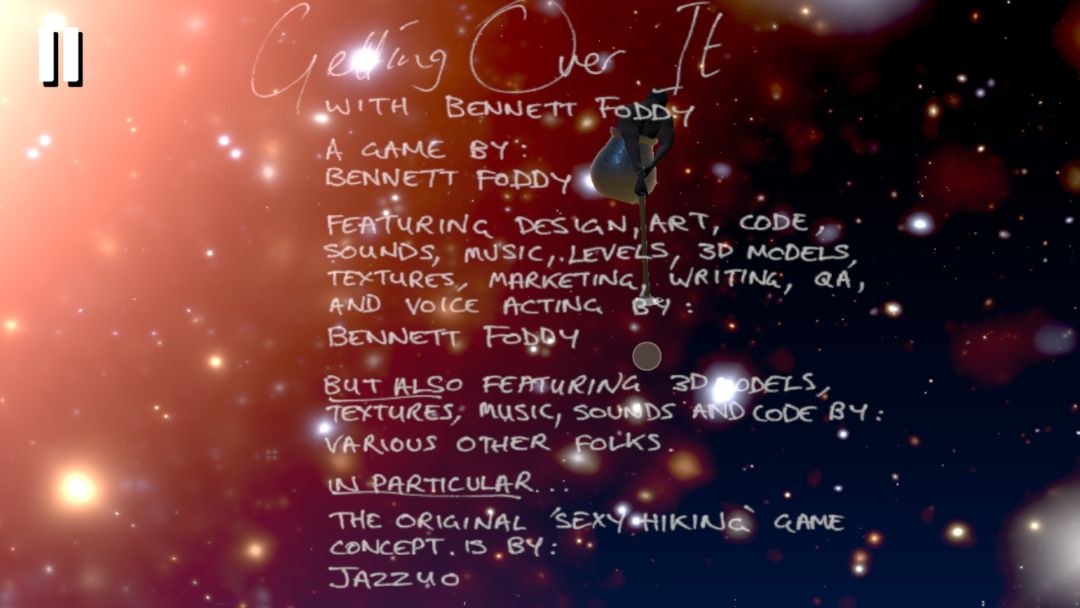 Getting Over It
WITH BENNETT FODDY
A GAME BY:
BENNETT FODDY
FEATURING DESIGN, ART, CODE,
SOUNDS, MUSIC, LEVELS, 3D MODELS,
TEXTURES, MARKETING, WRITING, QA,
AND VOICE ACTING BY:
BENNETT FODDY
BUT ALSO FEATURING 3D MODELS,
TEXTURES, MUSIC, SOUNDS AND CODE BY:
VARIOUS OTHER FOLKS.
IN PARTICULAR...
THE ORIGINAL 'SEXY HIKING' GAME
CONCEPT IS BY:
JAZZUO